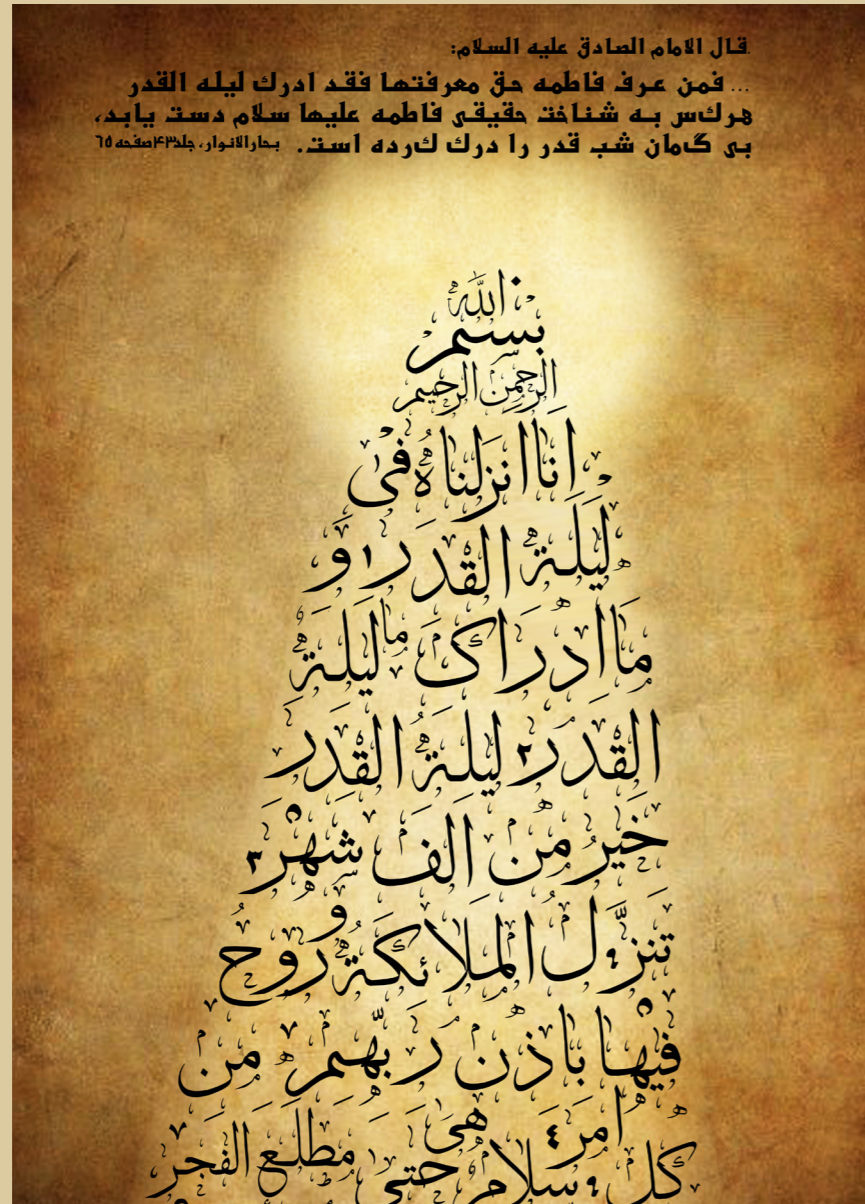 قال الامام الصادق علیه السلام:
... فمن عرف فاطمه حق معرفتها فقد ادرك لیله القدر
هركس به شناخت حقیقی فاطمه علیها سلام دست یابد،
بی گمان شب قدر را درك كرده است. بحارالانوار، جلد۴۳صفحه ۶۵
بسم الله
الرحمن الرحیم
انا انزلناه فی
لیلة القدر ۱ و
ما ادراک ما لیلة
القدر ۲ لیلة القدر
خیر من الف شهر ۳
تنزل الملائکة و روح
فیها باذن ربهم من
امر ٤ هی مطلع الفجر
کل سلام حتی